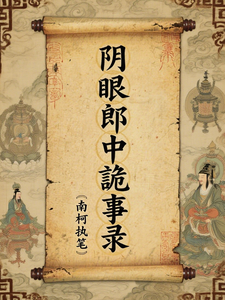 阴眼郎中詭事录
《南柯执笔》